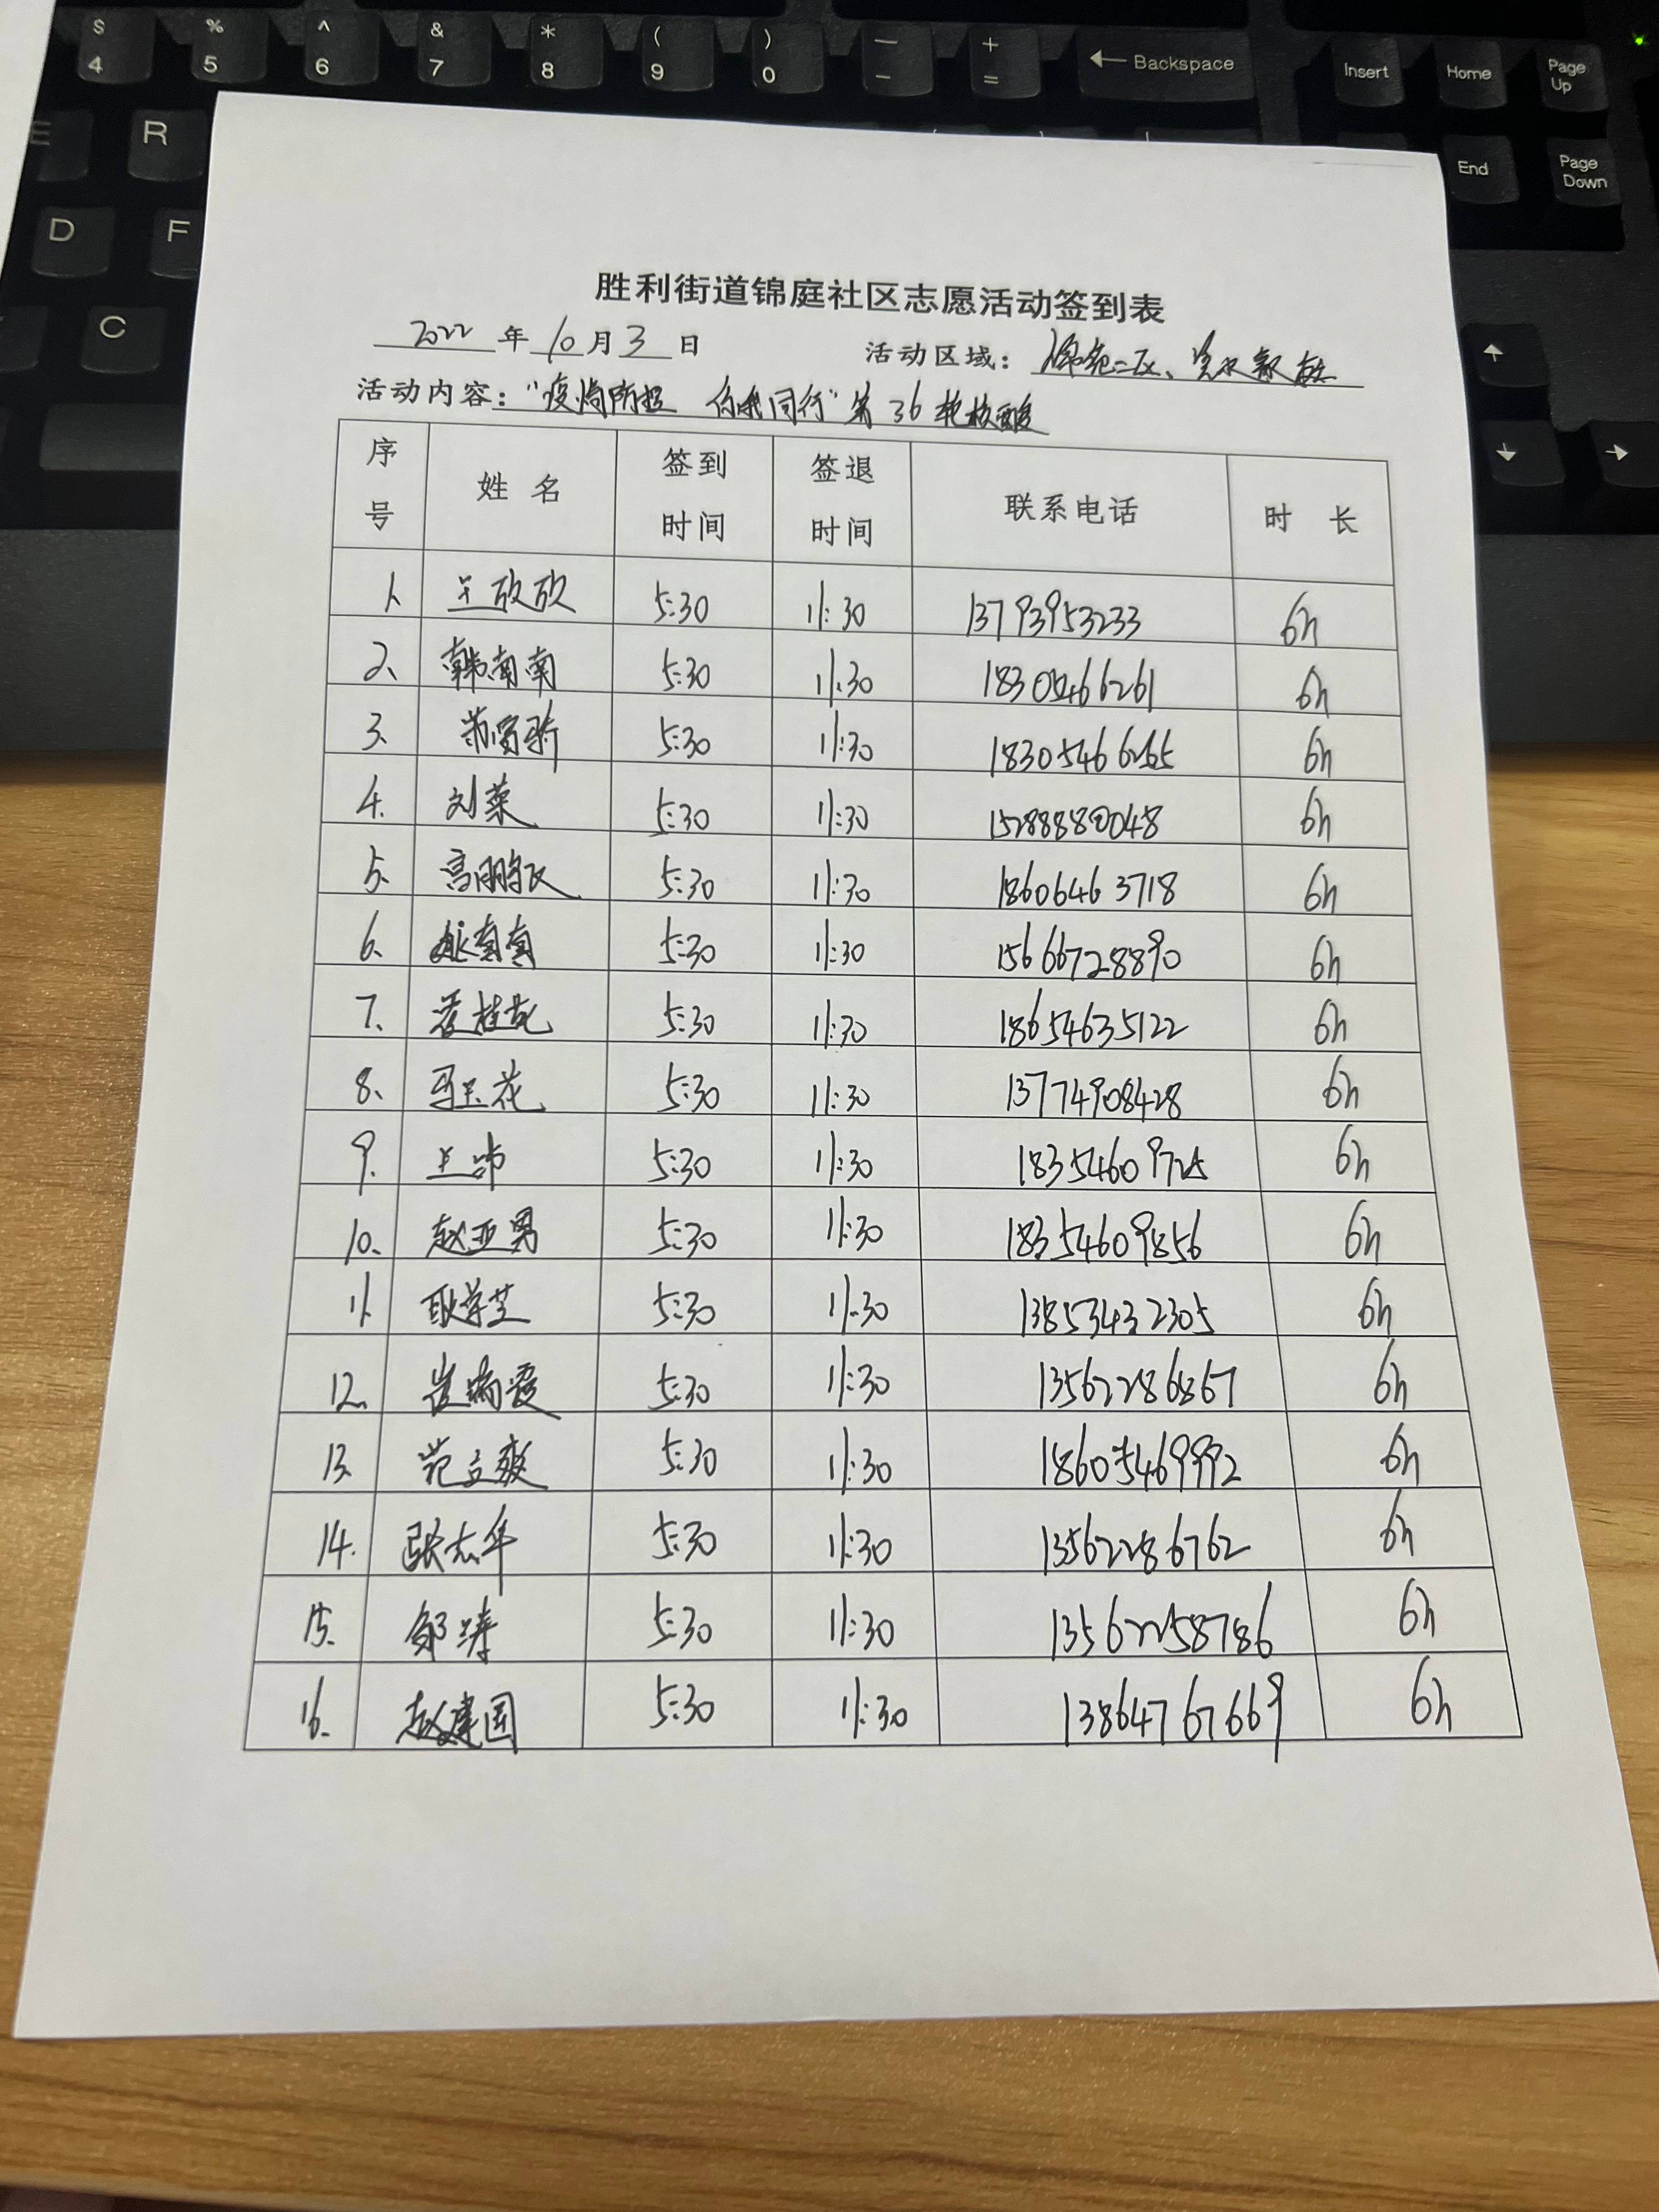 $ % ^ & * ( ) — +
4 5 6 7 8 9 0 - = ← Backspace Insert Home Page Up
E R End Page Down
D F
C
胜利街道锦庭社区志愿活动签到表
2022 年 10 月 3 日 活动区域:
活动内容: "疫情防控 你我同行" 第 36 轮核酸
序号 姓名 签到时间 签退时间 联系电话 时长
1、 王欣欣 5:30 11:30 13793953233 6h
2、 韩南南 5:30 11:30 18305466261 6h
3、 5:30 11:30 18305466265 6h
4、 刘荣 5:30 11:30 15288880048 6h
5、 5:30 11:30 18606463718 6h
6、 5:30 11:30 15666728890 6h
7、 5:30 11:30 18654635122 6h
8、 马玉花 5:30 11:30 13774908428 6h
9、 5:30 11:30 6h
10、 赵亚男 5:30 11:30 18354609856 6h
11、 耿学芝 5:30 11:30 13853432305 6h
12、 5:30 11:30 13562286867 6h
13、 范立爽 5:30 11:30 18605469992 6h
14、 张志华 5:30 11:30 13562286762 6h
15、 邹涛 5:30 11:30 13562258786 6h
16、 赵建国 5:30 11:30 13864767669 6h